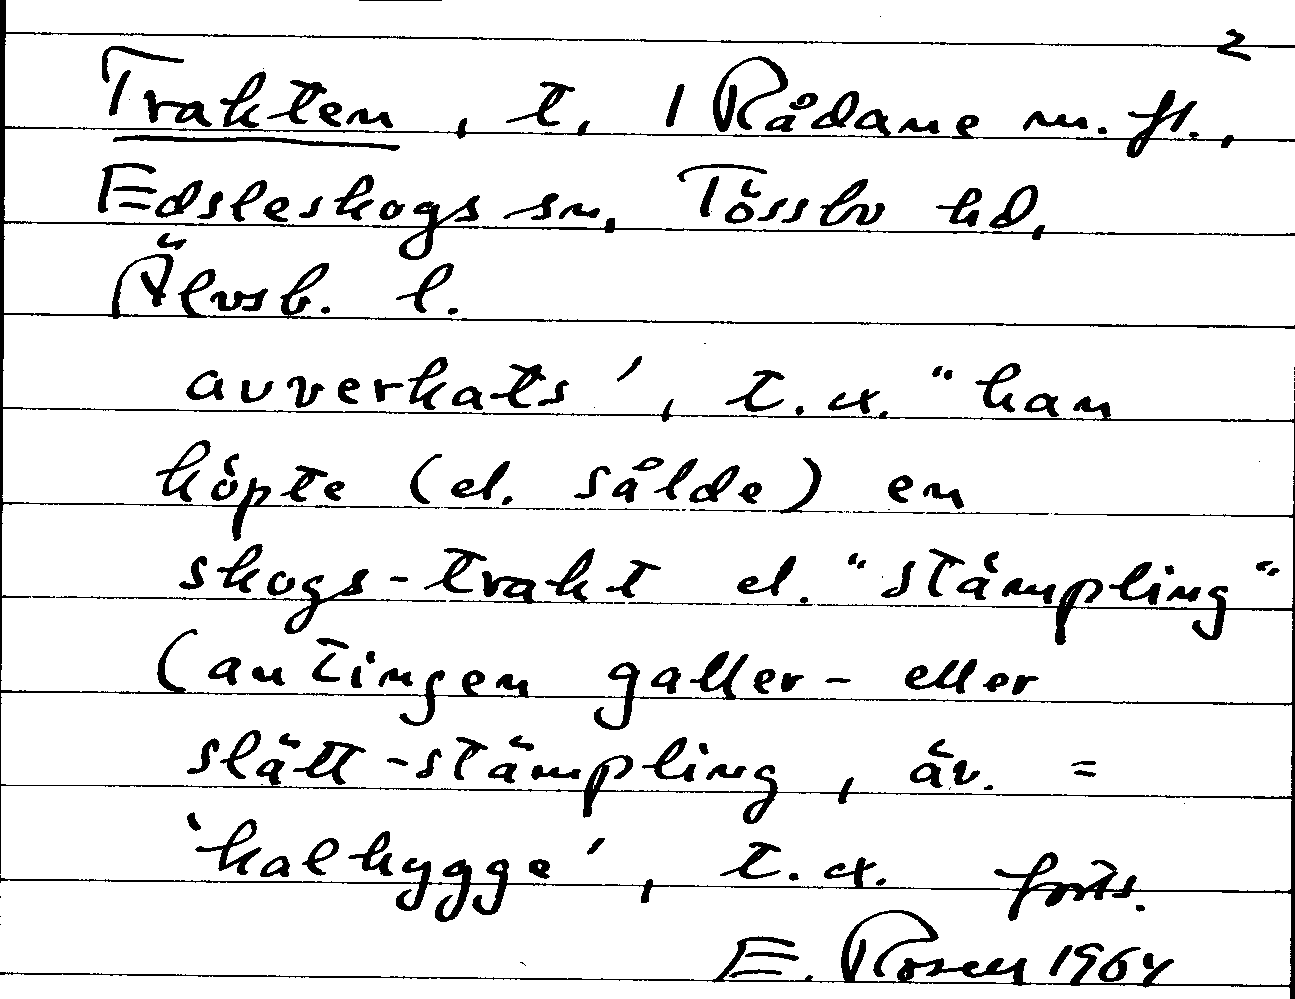 2
Trakten, t. 1 Rådane m. fl.,
Edsleskogs sn, Tössbo hd,
Älvsb. l.
avverkats', t. ex. "han
köpte (el. sålde) en
skogs-trakt el. "stämpling"
(antingen galler- eller
slätt-stämpling, äv. =
'kalhygge', t. ex. forts.
E. Rosell 1964